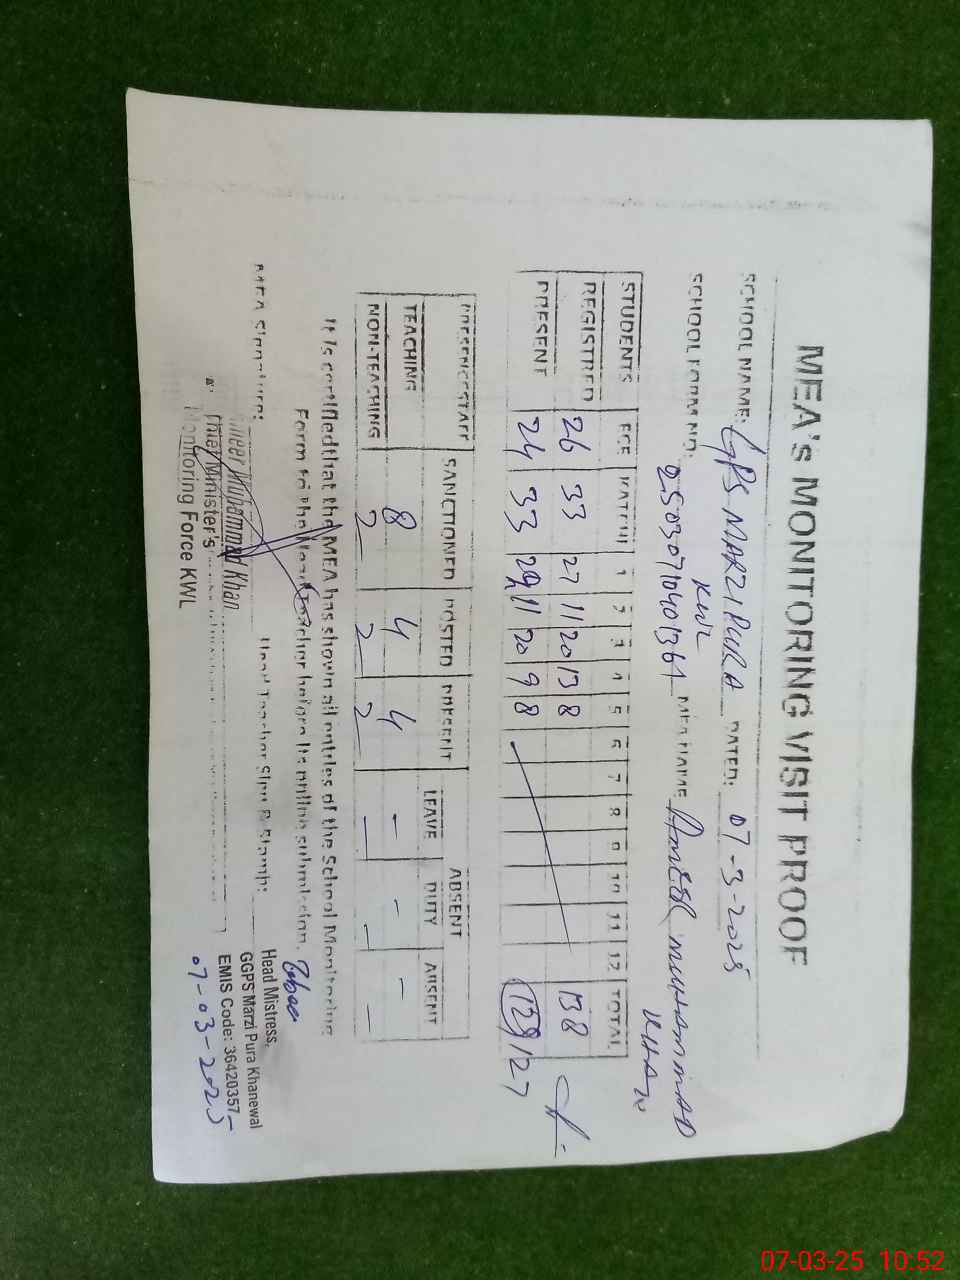 MEA's MONITORING VISIT PROOF
SCHOOL NAME: GPS MARZI PURA KWL DATED: 07-3-2025
SCHOOL FORM NO: MEA NAME AMEER MUHAMMAD KHAN
STUDENTS ECE KATCHI 1 2 3 4 5 6 7 8 9 10 11 12 TOTAL
REGISTRED 26 33 27 11 20 13 8 138
PRESENT 24 33 11 20 9 8 127
PRESENCE STAFF SANCTIONED POSTED PRESENT ABSENT
LEAVE DUTY ABSENT
TEACHING 8 4 4 - - -
NON-TEACHING 2 2 2 - - -
It is certified that the MEA has shown all entries of the School Monitoring
Form to the Head Teacher before its online submission.
MEA Signature: Head Teacher Sign & Stamp:
Ameer Muhammad Khan
Chief Minister's
Monitoring Force KWL
Head Mistress,
GGPS Marzi Pura Khanewal
EMIS Code: 36420357
07-03-2025
07-03-25 10:52